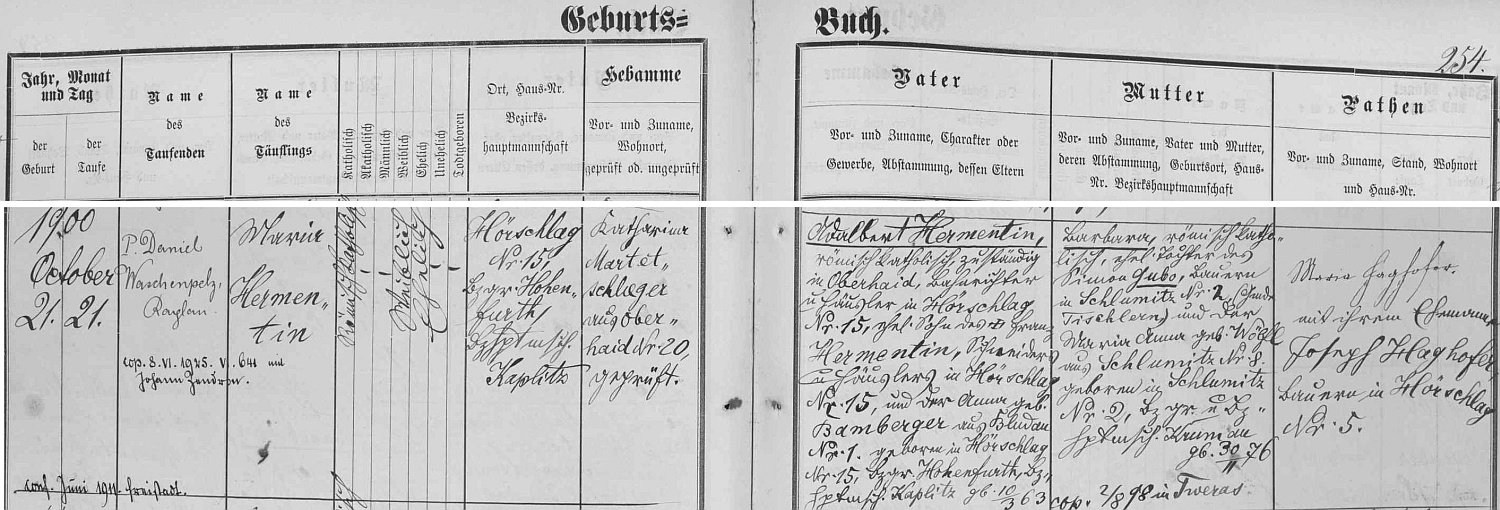 Geburts=
Buch.
254.
Jahr, Monat
und Tag
der
Geburt
der
Taufe
Name
des
Taufenden
Name
des
Täuflings
Katholisch
Akatholisch
Männlich
Weiblich
Ehelich
Unehelich
Todtgeboren
Ort, Haus-Nr.
Bezirks-
hauptmannschaft
Hebamme
Vor- und Zuname,
Wohnort,
geprüft od. ungeprüft
Vater
Vor- und Zuname, Charakter oder
Gewerbe, Abstammung, dessen Eltern
Mutter
Vor- und Zuname, Vater und Mutter,
deren Abstammung, Geburtsort, Haus-
Nr. Bezirkshauptmannschaft
Pathen
Vor- und Zuname, Stand, Wohnort
und Haus-Nr.
1900
October
21. 21.
P. Daniel
Waschenpelz,
Kaplan.
Maria
Hermen-
tin
cop. 8. VI. 1925. V. 641 mit
Johann
conf. Juni 1911. Freistadt.
Römisch katholisch
Weiblich
Ehelich
Hörschlag
Nr. 15,
Bzgr. Hohen„
furth,
Bzhptmsch.
Kaplitz
Katharina
Martet„
schlæger
aus Ober„
haid Nr. 20,
geprüft.
Adalbert Hermentin,
römisch katholisch, zuständig
in Oberhaid, Bahnrichter
u. Häusler in Hörschlag
Nr. 15, ehel. Sohn des † Franz
Hermentin, Schneiders
u. Häuslers in Hörschlag
Nr. 15, und der Anna geb.
Bamberger aus
Nr. 1. geboren in Hörschlag
Nr. 15, Bzgr. Hohenfurth, Bz„
hptmsch. Kaplitz gb. 10/3 63
Barbara, römisch katho„
lisch, ehel. Tochter des
Simon Gubo, Bauern
in Schlumitz Nr. 2,
Tischlern) und der
Maria Anna geb. Wögl
aus Schlumitz Nr. 8.
geboren in Schlumitz
Nr. 2, Bzgr. u. Bz„
hptmsch. Krumau
gb. 30/11 76
cop. 2/8 98 in Tweras.
Maria Haghofer.
mit ihrem Ehemanne
Joseph Haghofer,
Bauern in Hörschlag
Nr. 5.